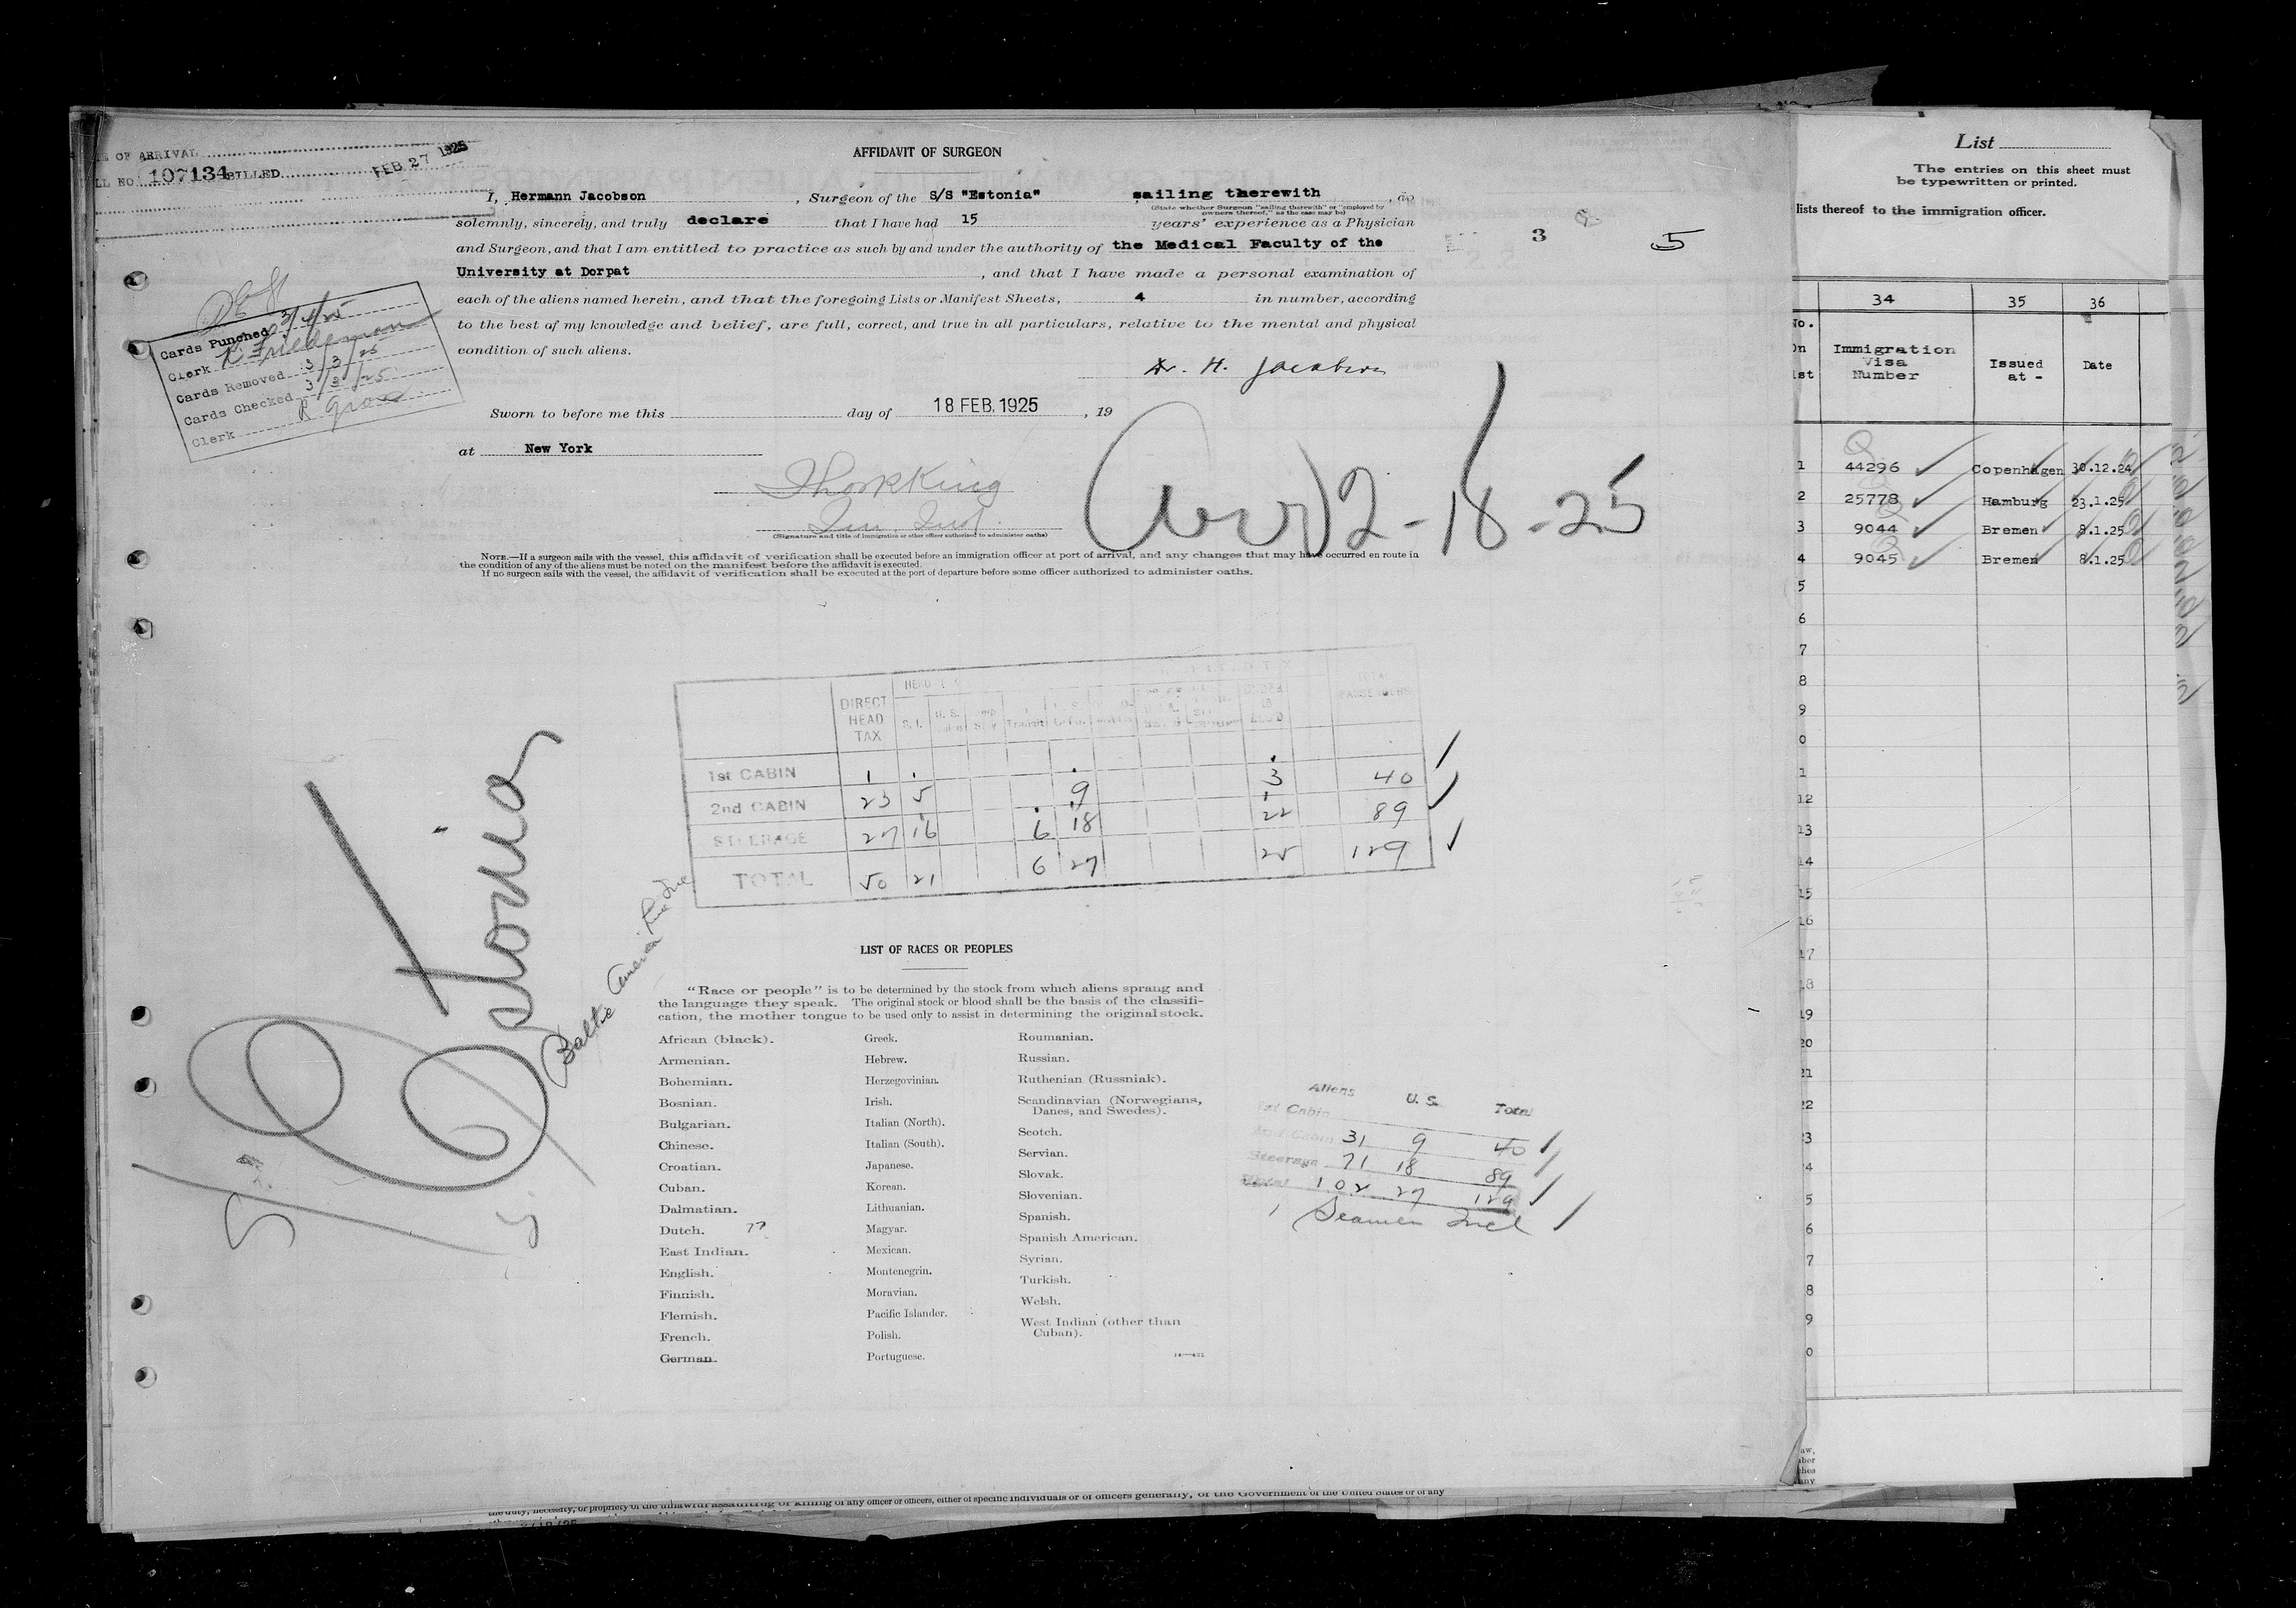 OF ARRIVAL
LL NO. 107134 BILLED FEB 27 1925
AFFIDAVIT OF SURGEON
I, Hermann Jacobson, Surgeon of the S/S "Estonia" sailing therewith, do
(State whether Surgeon "sailing therewith" or "employed by
owners thereof," as the case may be)
solemnly, sincerely, and truly declare that I have had 15 years' experience as a Physician
and Surgeon, and that I am entitled to practice as such by and under the authority of the Medical Faculty of the
University at Dorpat, and that I have made a personal examination of
each of the aliens named herein, and that the foregoing Lists or Manifest Sheets, 4 in number, according
to the best of my knowledge and belief, are full, correct, and true in all particulars, relative to the mental and physical
condition of such aliens.
Dr. H. Jacobson
Sworn to before me this day of 18 FEB. 1925, 19
at New York
(Signature and title of immigration or other officer authorized to administer oaths)
NOTE.—If a surgeon sails with the vessel, this affidavit of verification shall be executed before an immigration officer at port of arrival, and any changes that may have occurred en route in
the condition of any of the aliens must be noted on the manifest before the affidavit is executed.
If no surgeon sails with the vessel, the affidavit of verification shall be executed at the port of departure before some officer authorized to administer oaths.
3
5
2-18-25
Cards Punched 3/4/25
Clerk K Friedeman
Cards Removed 3/3/25
Cards Checked 3/3/25
Clerk R Gross
DIRECT HEAD TAX
S.I.
U.S.
Transit
TOTAL PASSENGERS
1st CABIN 1
2nd CABIN 23 5 9 3 40
STEERAGE 27 16 6 18 22 89
TOTAL 50 21 6 27 25 129
Estonia
Baltic America Line Inc
LIST OF RACES OR PEOPLES
"Race or people" is to be determined by the stock from which aliens sprang and
the language they speak. The original stock or blood shall be the basis of the classifi-
cation, the mother tongue to be used only to assist in determining the original stock.
African (black).
Armenian.
Bohemian.
Bosnian.
Bulgarian.
Chinese.
Croatian.
Cuban.
Dalmatian.
Dutch. 77
East Indian.
English.
Finnish.
Flemish.
French.
German.
Greek.
Hebrew.
Herzegovinian.
Irish.
Italian (North).
Italian (South).
Japanese.
Korean.
Lithuanian.
Magyar.
Mexican.
Montenegrin.
Moravian.
Pacific Islander.
Polish.
Portuguese.
Roumanian.
Russian.
Ruthenian (Russniak).
Scandinavian (Norwegians,
Danes, and Swedes).
Scotch.
Servian.
Slovak.
Slovenian.
Spanish.
Spanish American.
Syrian.
Turkish.
Welsh.
West Indian (other than
Cuban).
Aliens U. S. Total
1st Cabin
2nd Cabin 31 9 40
Steerage 71 18 89
Total 102 27 129
1 Seamen Incl
the duty, necessity, or propriety of the unlawful assaulting or killing of any officer or officers, either of specific individuals or of officers generally, of the Government of the United States or of any
List
The entries on this sheet must
be typewritten or printed.
lists thereof to the immigration officer.
34 35 36
No. on list
Immigration Visa Number
Issued at -
Date
1 44296 Copenhagen 30.12.24
2 25778 Hamburg 23.1.25
3 9044 Bremen 8.1.25
4 9045 Bremen 8.1.25
5
6
7
8
9
0
1
12
13
14
15
16
17
18
19
20
21
22
23
4
5
6
7
8
9
0